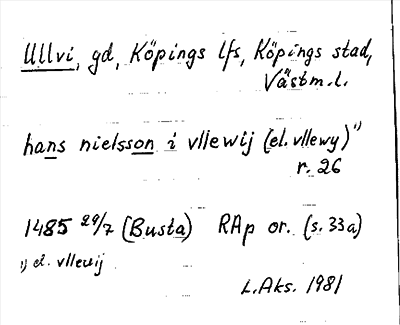 Ullvi, gd, Köpings lfs, Köpings stad,
Västm.l.
hans nielsson i vllewij (el. vllewy)¹⁾
r. 26
1485 29/7 (Busta) RAp or. (s. 33a)
¹⁾ el. vlleuij
L.Aks. 1981